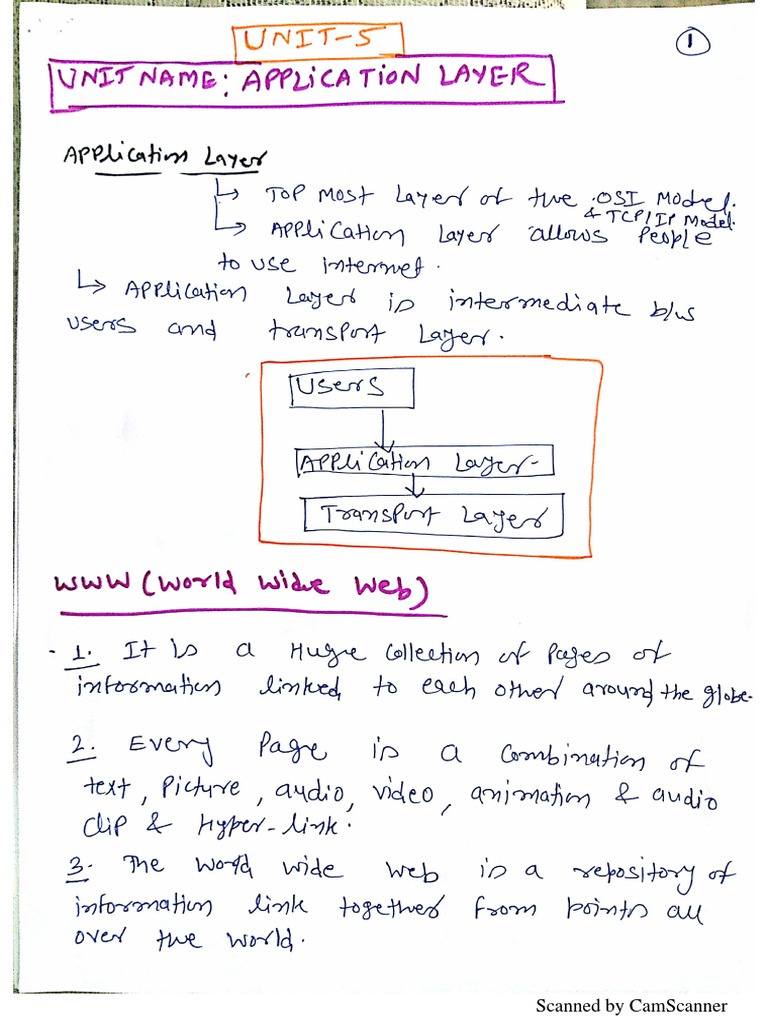 UNIT-5
1
UNIT NAME: APPLICATION LAYER
Application Layer
↳ TOP MOST Layer of the OSI Model.
& TCP/IP Model.
↳ Application Layer allows People
to use internet.
↳ Application Layer is intermediate b/w
users and transport Layer.
Users
Application Layer
Transport Layer
WWW (World Wide Web)
1. It is a Huge Collection of Pages of
information linked to each other around the globe.
2. Every Page is a combination of
text, Picture, audio, video, animation & audio
clip & Hyper-link.
3. The World wide web is a repository of
information link together from points all
over the world.
Scanned by CamScanner